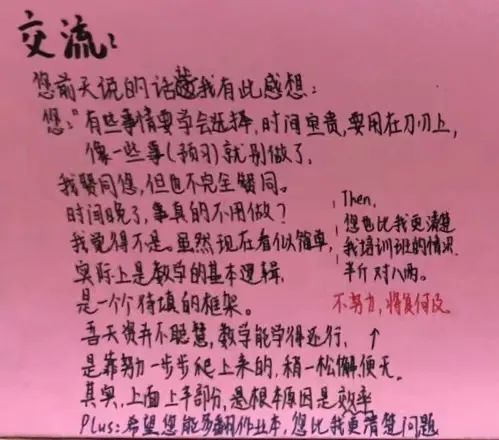 交流：
您前天说的话让我有此感想：
您："有些事情要学会选择，时间宝贵，要用在刀刃上，
像一些事(预习)就别做了，
我赞同您，但也不完全赞同。
时间晚了，事真的不用做？
我觉得不是。虽然现在看似简单，
实际上是数学的基本逻辑，
是一个个待填的框架。
吾天资并不聪慧，数学能学得还行，
是靠努力一步步爬上来的，稍一松懈便无。
其实，上面上半部分，是根本原因是效率
Plus:希望您能多翻作业本，您比我更清楚问题
Then,
您也比我更清楚
我培训班的情况
半斤对八两。
不努力，将复何及